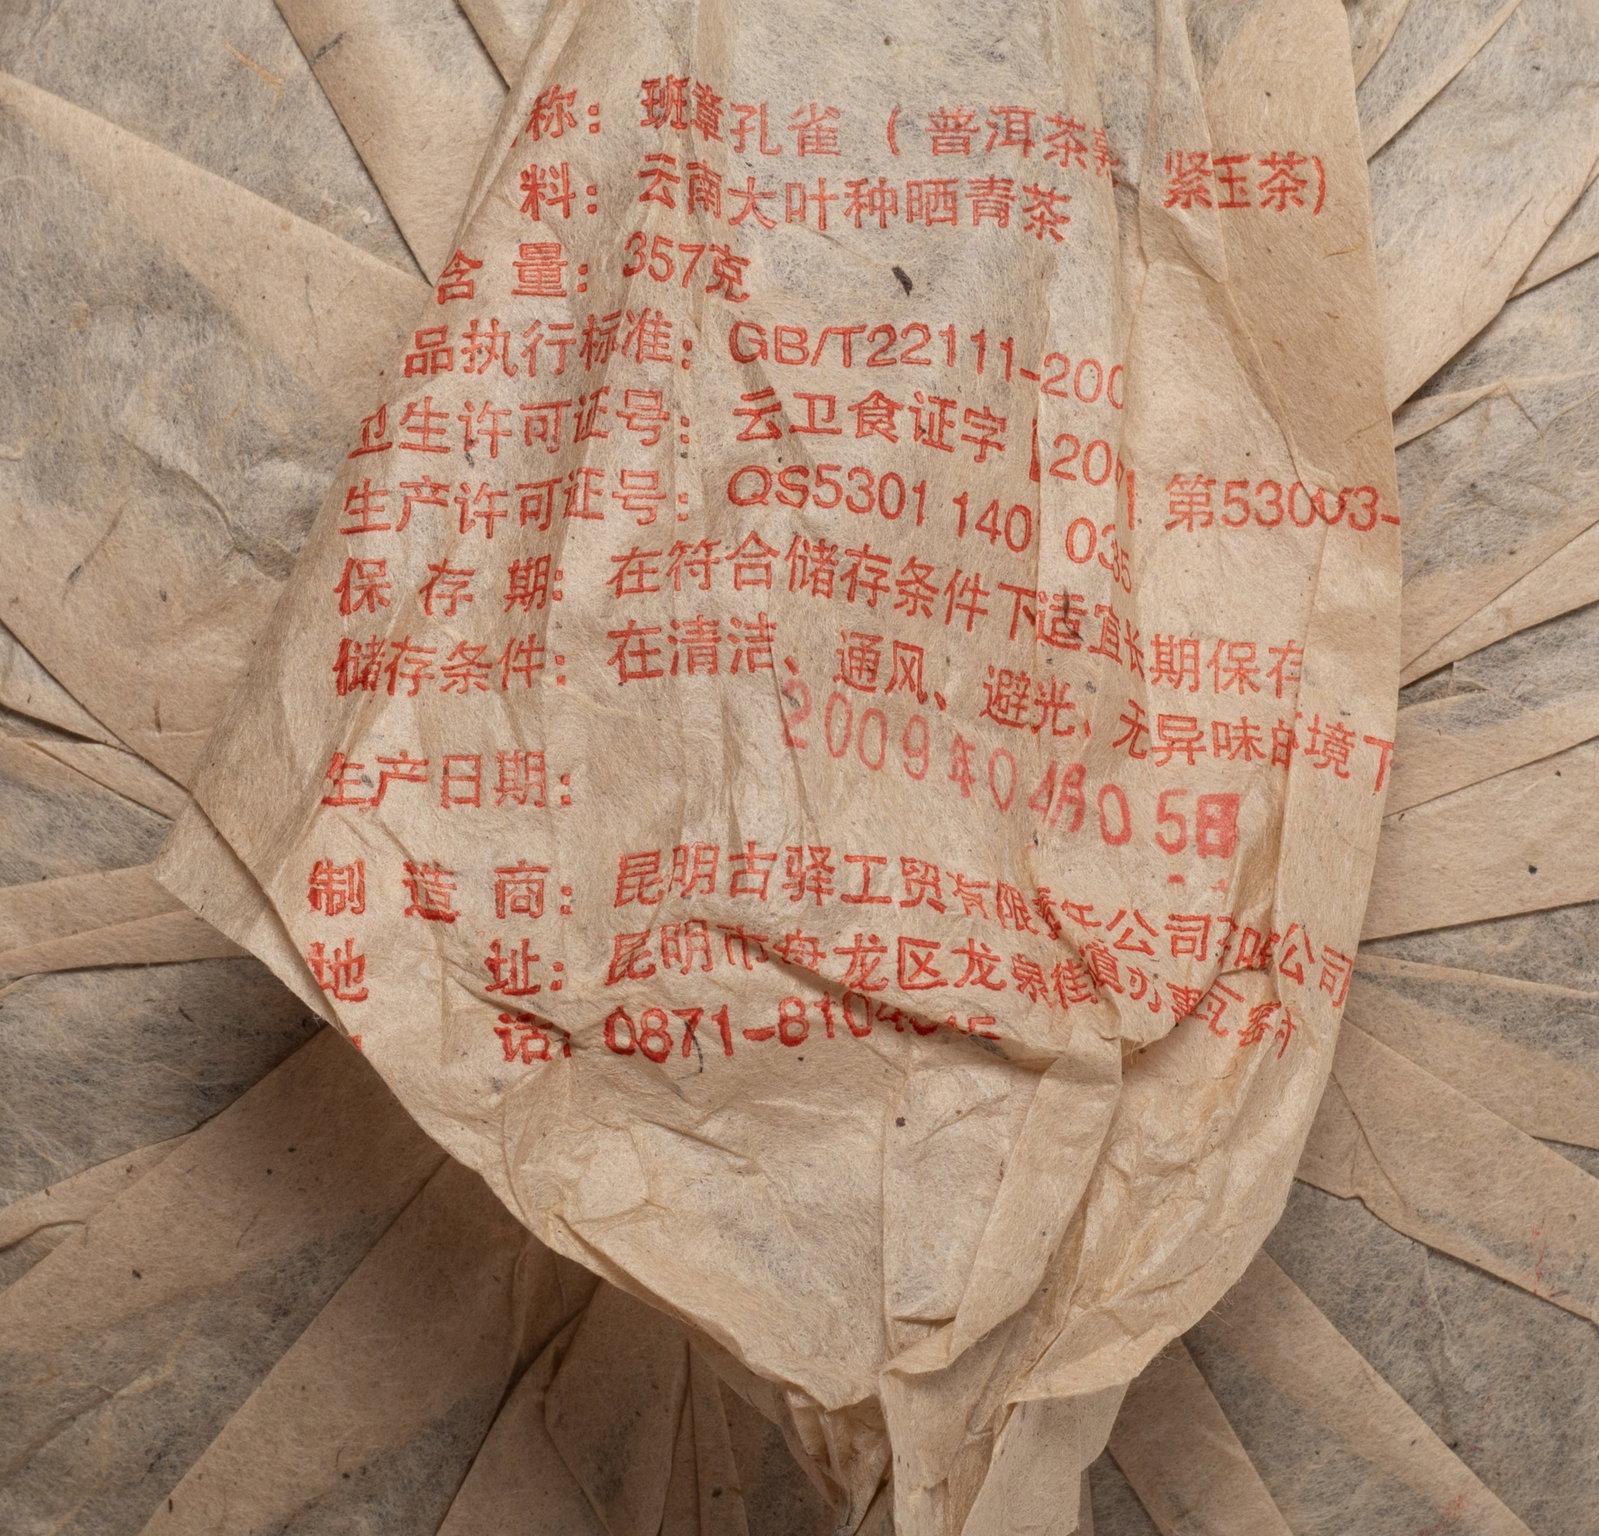 称：班章孔雀（普洱茶 紧玉茶）
料：云南大叶种晒青茶
含 量：357克
品执行标准：GB/T22111-200
卫生许可证号：云卫食证字 [20 第53003-
生产许可证号：QS5301 140 035
保 存 期：在符合储存条件下适宜长期保存
储存条件：在清洁、通风、避光、无异味的境下
生产日期：2009年04月05日
制 造 商：昆明古驿工贸有限 公司 公司
地 址：昆明市盘龙区龙泉街 办事
话：0871-8104